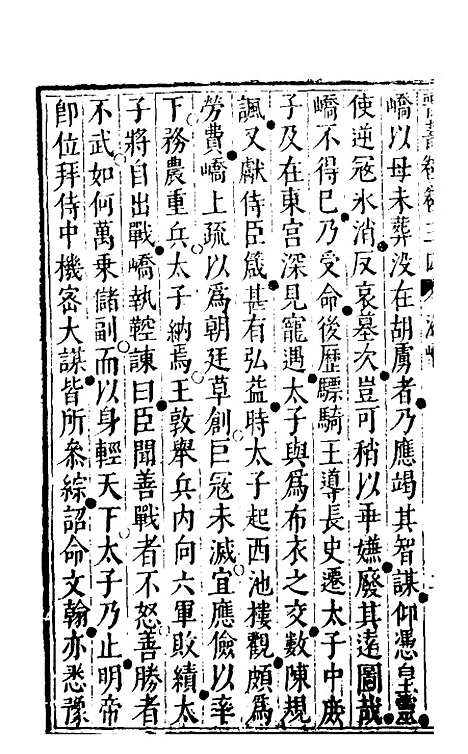 嶠以母未葬没在胡虜者乃應竭其智謀仰憑皇靈
使逆冦氷消反哀墓次豈可稍以乖嫌廢其遠圖哉
嶠不得已乃受命後歷驃騎王導長史遷太子中庶
子及在東宫深見寵遇太子與爲布衣之交數陳規
諷又獻侍臣箴甚有弘益時太子起西池樓觀頗爲
勞費嶠上疏以爲朝廷草創巨冦未滅宜應儉以率
下務農重兵太子納焉王敦舉兵内向六軍敗績太
子將自出戰嶠執鞚諫曰臣聞善戰者不怒善勝者
不武如何萬乘儲副而以身輕天下太子乃止明帝
卽位拜侍中機密大謀皆所叅綜詔命文翰亦悉豫